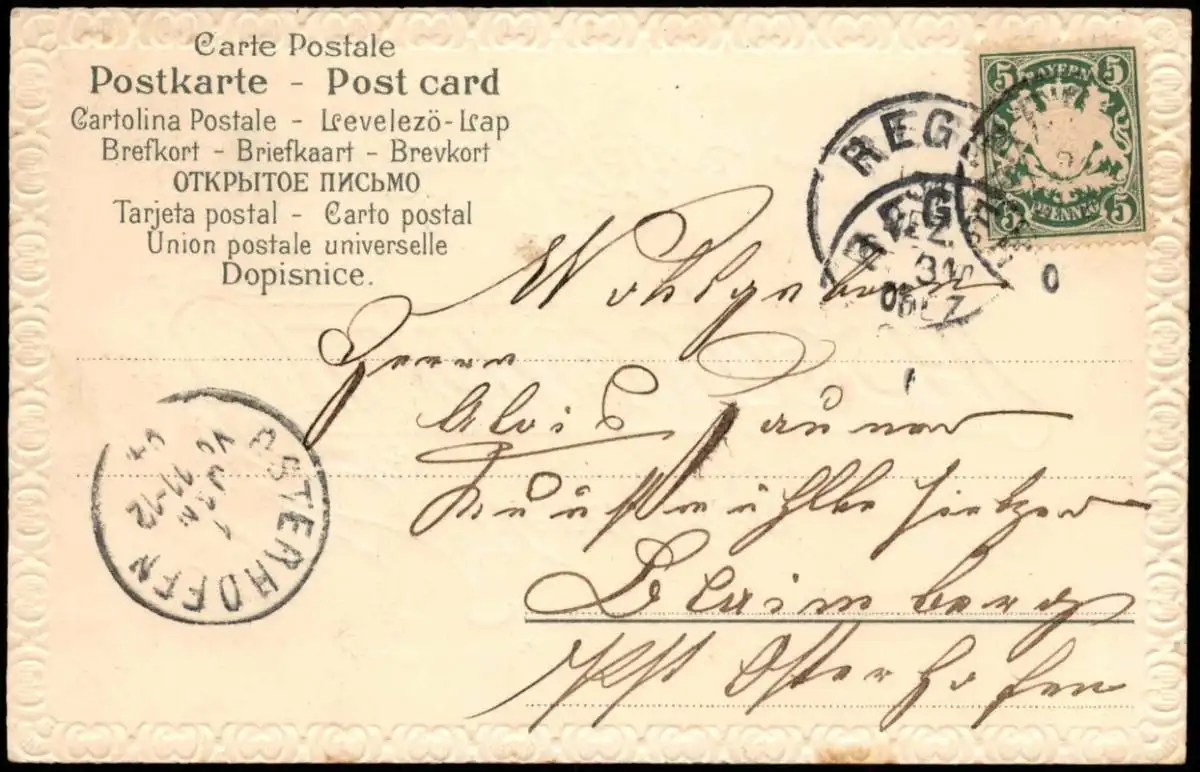 Carte Postale
Postkarte - Post card
Cartolina Postale - Levelezö-Lap
Brefkort - Briefkaart - Brevkort
ОТКРЫТОЕ ПИСЬМО
Tarjeta postal - Carto postal
Union postale universelle
Dopisnice.
5 BAYERN 5
5 PFENNIG 5
REG
REG
DEZ
31
DEZ
Wohlgeboren
Herrn
Alois
Kunstmühlbesitzer
OSTERHOFEN
1 JAN
11-12
Kst Osterhofen